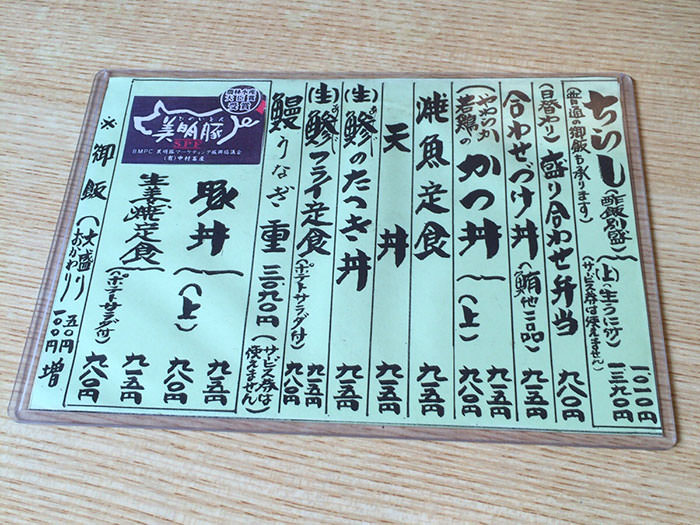 ちらし(酢飯別盛) 一、〇一〇円
(普通の御飯も承ります)
(上)(生うに付) 一三九〇円
(サービス券は使えません)
(日替わり)盛り合わせ弁当 九八〇円
合わせづけ丼(鮪他二品) 九二五円
(やわらか若鶏の)かつ丼 九一五円
(上) 九八〇円
焼魚定食 九二五円
天丼 九一五円
(生)鯵のたつき丼 九一五円
(生)鯵フライ定食(ポテトサラダ付) 九二五円
九八〇円
鰻うなぎ重 三〇九〇円(サービス券は使えません)
美明豚
びめいとん
SPF
BMPC 美明豚マーケティング販売協議会
(有)中村畜産
豚丼 九二五円
(上) 九八〇円
生姜焼定食 九一五円
(ポテトサラダ付) 九八〇円
※御飯(大盛り 五〇円
おかわり) 一〇〇円 増